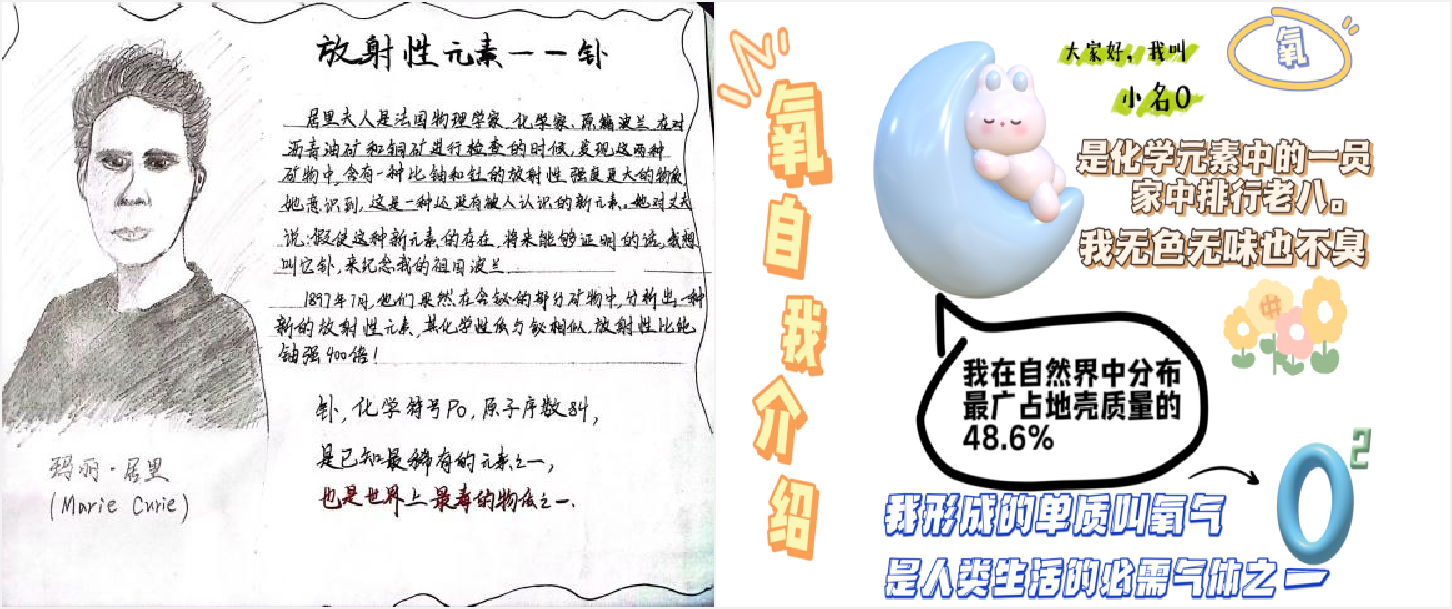 放射性元素——钋
居里夫人是法国物理学家、化学家、原籍波兰,在对
沥青油矿和铜矿进行检查的时候,发现这两种
矿物中,含有一种比铀和钍的放射性强度更大的物质,
她意识到,这是一种还没有被人认识的新元素。她对丈夫
说:假使这种新元素的存在,将来能够证明的话,我想
叫它钋,来纪念我的祖国波兰
1897年7月,他们果然在含铋的部分矿物中,分析出一种
新的放射性元素,其化学性质与铋相似,放射性比纯
铀强900倍!
钋,化学符号Po,原子序数84,
是已知最稀有的元素之一,
也是世界上最毒的物质之一.
玛丽·居里
(Marie Curie)
氧自我介绍
大家好,我叫
氧
小名O
是化学元素中的一员
家中排行老八。
我无色无味也不臭
我在自然界中分布
最广占地壳质量的
48.6%
O2
我形成的单质叫氧气
是人类生活的必需气体之一